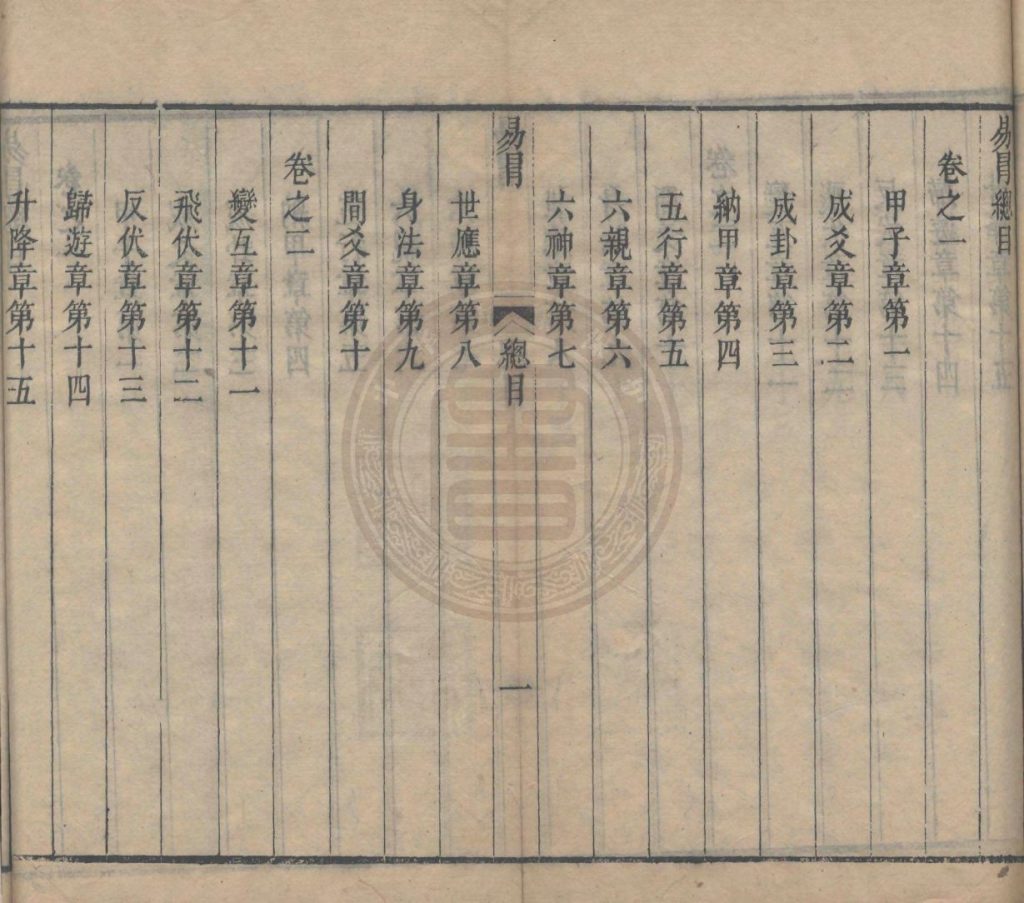 易冒總目
卷之一
甲子章第一
成爻章第二
成卦章第三
納甲章第四
五行章第五
六親章第六
六神章第七
易冒
總目
一
世應章第八
身法章第九
間爻章第十
卷之二
變互章第十一
飛伏章第十二
反伏章第十三
歸遊章第十四
升降章第十五